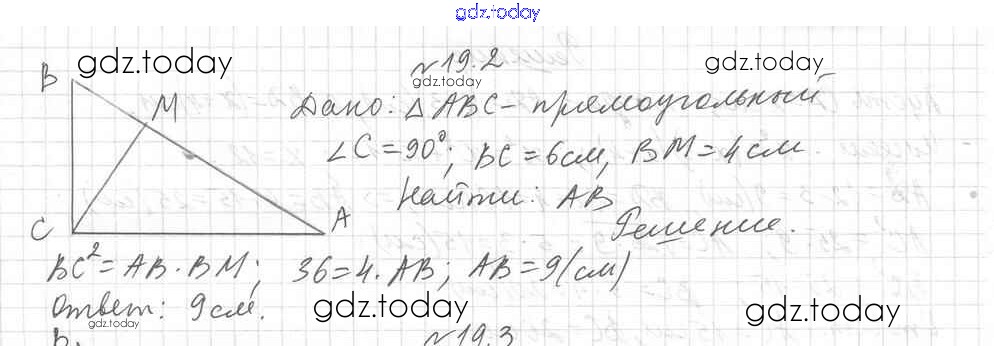 gdz.today
№19.2
gdz.today
gdz.today
gdz.today
B
M
Дано: △ABC - прямоугольный
∠C = 90°; BC = 6 см, BM = 4 см.
Найти: AB
C
A
Решение.
BC² = AB · BM; 36 = 4 · AB; AB = 9 (см)
Ответ: 9 см.
gdz.today
gdz.today
gdz.today
B
№19.3